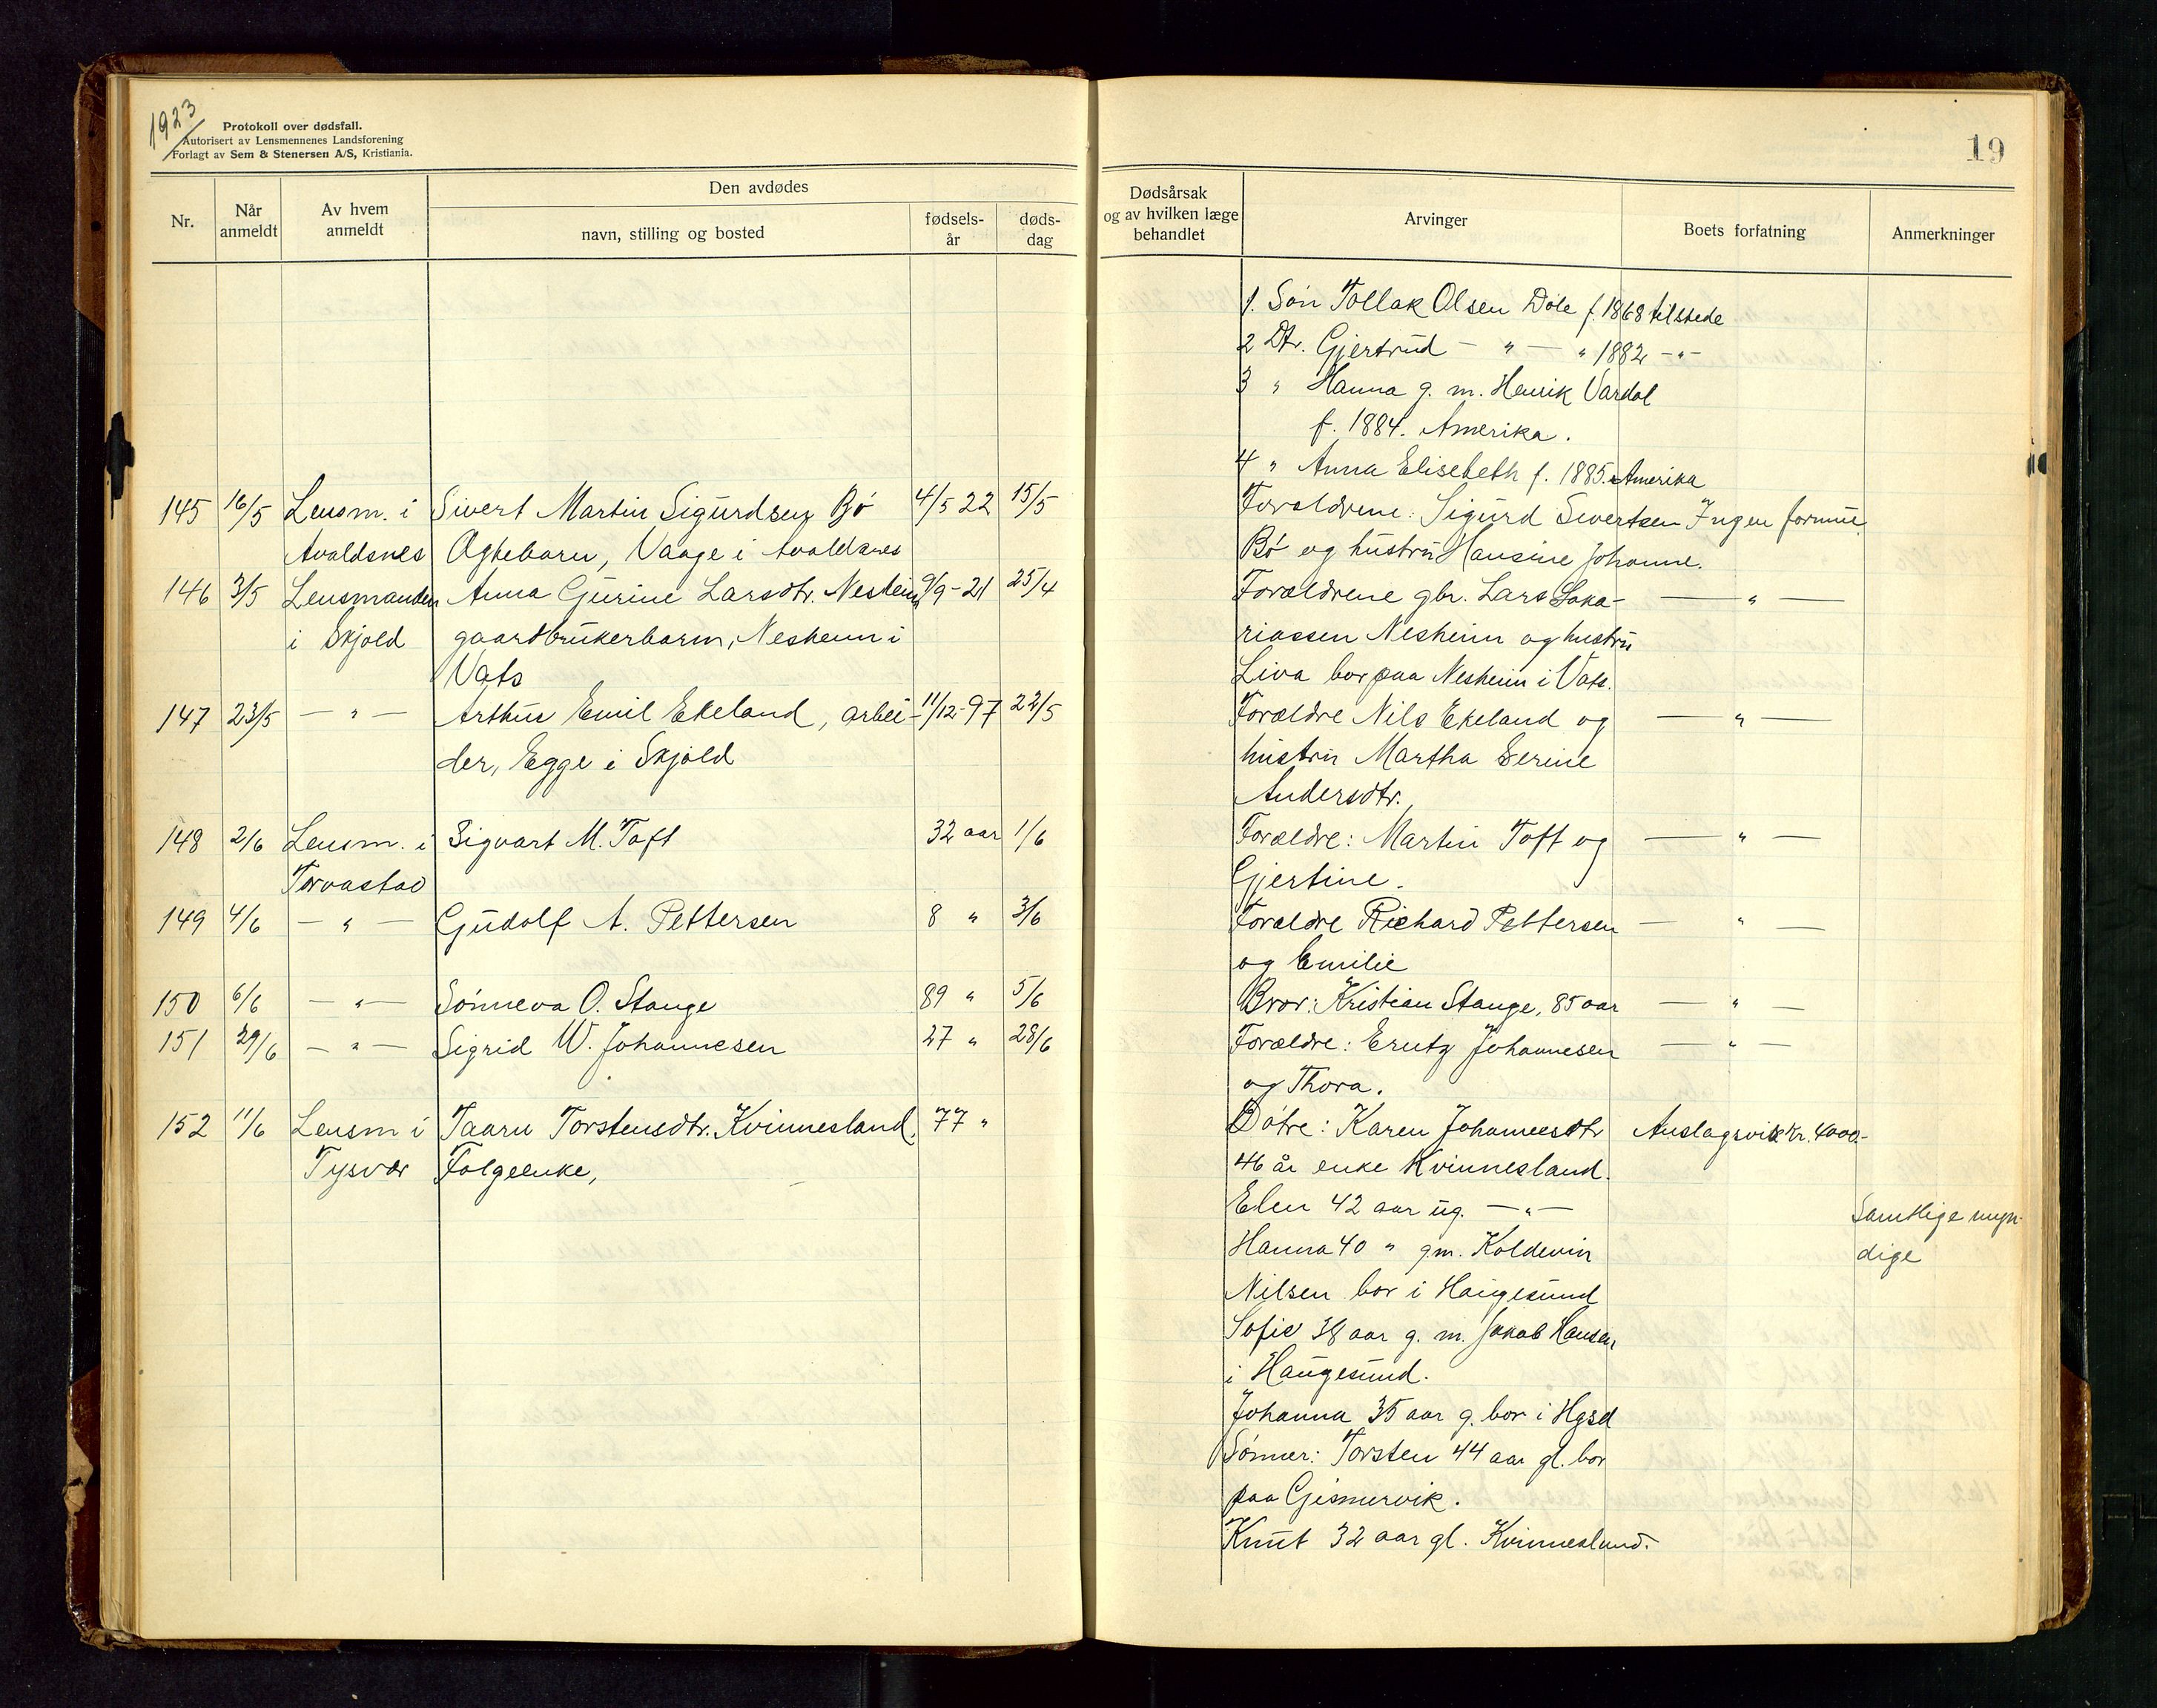 1923
Protokoll over dødsfall.
Autorisert av Lensmennenes Landsforening
Forlagt av Sem & Stenersen A/S, Kristiania.
Nr.
Når anmeldt
Av hvem anmeldt
Den avdødes
navn, stilling og bosted
fødsels-år
døds-dag
145 16/5 Lensm. i Sivert Martin Sigurdsen Bø 4/5 22 15/5
Avaldsnes Ogtebarn, Vaage i Avaldsnes
146 3/5 Lensmanden Anna Gurine Larsdtr. Nesheim 9/9-21 25/4
i Skjold gaardbrukerbarn, Nesheim i
Vats
147 23/5 — " — Arthur Emil Ekeland, arbei- 11/12-97 22/5
der, Egge i Skjold
148 2/6 Lensm. i Sigvart M. Toft 32 aar 1/6
Torvastad
149 4/6 — " — Gudolf A. Pettersen 8 " 3/6
150 6/6 — " — Sønneva O. Stange 89 " 5/6
151 29/6 — " — Sigrid W. Johannesen 27 " 28/6
152 11/6 Lensm i Taaru Torstensdtr. Kvinnesland, 77 "
Tysvær Følgeenke,
19
Dødsårsak
og av hvilken læge
behandlet
Arvinger
Boets forfatning
Anmerkninger
1. Søn Tollak Olsen Døle f. 1868 tilstede
2 Dtr. Gjertrud — " — " 1882 — " —
3 " Hanna g. m. Henrik Vardal
f. 1884. Amerika.
4 " Anna Elisebeth f. 1885. Amerika
Forældrene: Sigurd Sivertsen Ingen formue.
Bø og hustru Hansine Johanne.
Forældrene gbr. Lars Saka- — " —
riassen Nesheim og hustru
Liva bor paa Nesheim i Vats.
Forældre Nils Ekeland og — " —
hustru Martha Serine
Andersdtr.
Forældre: Martin Toft og — " —
Gjertine.
Forældre Richard Pettersen — " —
og Emilie
Bror: Kristian Stange, 85 aar — " —
Forældre: Johannesen — " —
og Thora.
Døtre: Karen Johannesdtr Anslagsvis Kr. 4000.-
46 år enke Kvinnesland.
Elen 42 aar ug. — " — Samtlige myn-
Hanna 40 " gm. Koldevin dige
Nilsen bor i Haugesund
Sofie 38 aar g. m. Jakob Hansen
i Haugesund.
Johanna 35 aar g. bor i Hgsd
Sønner: Torsten 44 aar gl. bor
paa Gismervik.
Knut 32 aar gl. Kvinnesland.